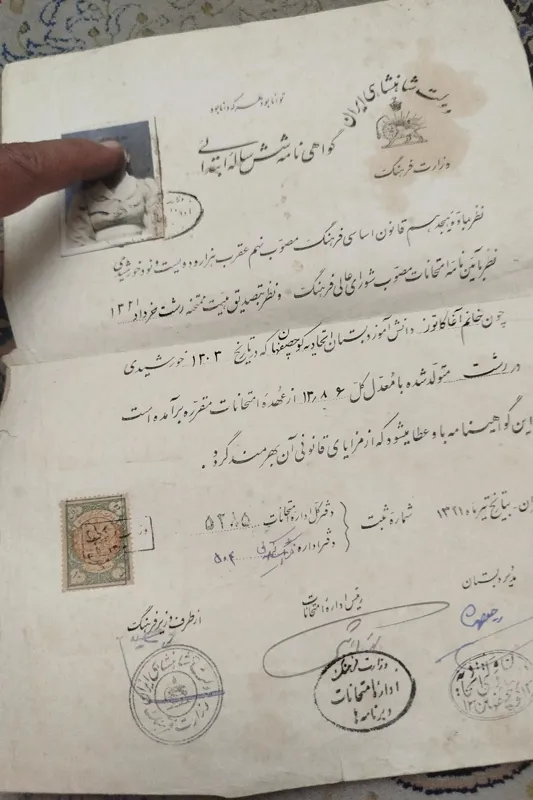 دولت شاهنشاهی ایران
وزارت فرهنگ
توانا بود هر که دانا بود
گواهی نامه شش ساله ابتدائی
نظر بماده نوزدهم قانون اساسی فرهنگ مصوب نهم عقرب هزار و ده بیست و نود خورشیدی
نظر بآئین نامه امتحانات مصوب شورای عالی فرهنگ و نظر بتصدیق هیئت ممتحنه رشت خرداد ۱۳۲۱
چون خانم آغا کاتوز دانش آموز دبستان اتحادیه که در تاریخ ۱۳۰۳ خورشیدی
در رشت متولد شده با معدل کل ۱۳٫۸۶ از عهده امتحانات مقرره برآمده است
این گواهینامه باو عطا میشود که از مزایای قانونی آن بهره مند گردد.
بتاریخ تیر ماه ۱۳۲۱
شماره ثبت
دفتر کل اداره امتحانات ۵۲۸۵
دفتر اداره فرهنگ ۵۰۴
مدیر دبستان
رئیس اداره امتحانات
از طرف وزیر فرهنگ
وزارت فرهنگ
اداره امتحانات
و برنامه ها
دولت شاهنشاهی ایران
وزارت فرهنگ